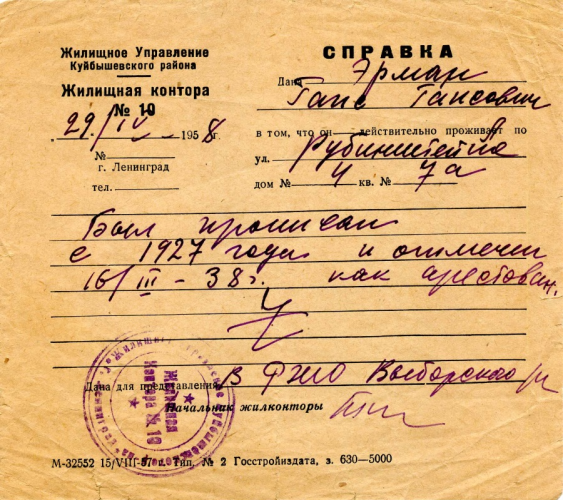 Жилищное Управление
Куйбышевского района
Жилищная контора
№ 10
29/IV 1958 г.
№
г. Ленинград
тел.
СПРАВКА
Дана Эрман
Ганс Гансович
в том, что он действительно проживает по
ул. Рубинштейна
дом № 4 кв. № 7а
Был прописан
с 1927 года и отмечен
16/III - 38 г. как арестован.
Дана для представления В РЖО Выборгского р-
Начальник жилконторы
Жилищная
Контора № 10
М-32552 15/VIII-57 г. Тип. № 2 Госстройиздата, з. 630—5000